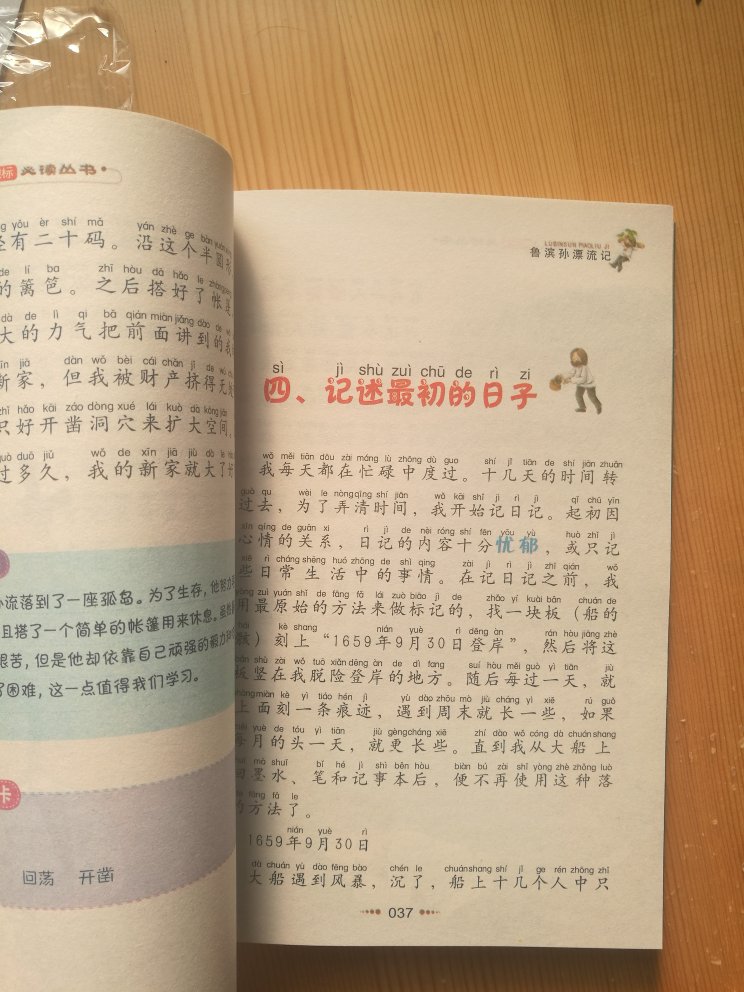 必读丛书
yǒu èr shí mǎ yán zhè ge bàn yuán
有二十码。沿这个半圆形
de lí ba zhī hòu dā hǎo le zhàng
的篱笆。之后搭好了帐
dà de lì qi bǎ qián miàn jiǎng dào de
大的力气把前面讲到的我
xīn jiā dàn wǒ bèi cái chǎn jǐ de wú
新家，但我被财产挤得无
zhǐ hǎo kāi záo dòng xué lái kuò dà kōng jiān
只好开凿洞穴来扩大空间。
guò duō jiǔ wǒ de xīn jiā jiù dà le
过多久，我的新家就大了
流落到了一座孤岛。为了生存，他努力
且搭了一个简单的帐篷用来休息。
艰苦，但是他却依靠自己顽强的毅力和
了困难，这一点值得我们学习。
卡
回荡 开凿
LUBINSUN PIAOLIU JI
鲁滨孙漂流记
sì jì shù zuì chū de rì zi
四、记述最初的日子
wǒ měi tiān dōu zài máng lù zhōng dù guo shí jǐ tiān de shí jiān zhuǎn
我每天都在忙碌中度过。十几天的时间转
guò qu wèi le nòng qīng shí jiān wǒ kāi shǐ jì rì jì qǐ chū yīn
过去，为了弄清时间，我开始记日记。起初因
xīn qíng de guān xi rì jì de nèi róng shí fēn yōu yù huò zhǐ jì
心情的关系，日记的内容十分忧郁，或只记
xiē rì cháng shēng huó zhōng de shì qing zài jì rì jì zhī qián wǒ
些日常生活中的事情。在记日记之前，我
yòng zuì yuán shǐ de fāng fǎ lái zuò biāo jì de zhǎo yí kuài bǎn chuán de
用最原始的方法来做标记的，找一块板（船的
nián yuè rì dēng àn rán hòu jiāng zhè
板）刻上“1659年9月30日登岸”，然后将这
bǎn shù zài wǒ tuō xiǎn dēng àn de dì fang suí hòu měi guò yì tiān jiù
板竖在我脱险登岸的地方。随后每过一天，就
shàng miàn kè yì tiáo hén jì yù dào zhōu mò jiù cháng yì xiē rú guǒ
上面刻一条痕迹，遇到周末就长一些，如果
měi yuè de tóu yì tiān jiù gèng cháng xiē zhí dào wǒ cóng dà chuán shang
每月的头一天，就更长些。直到我从大船上
huí mò shuǐ bǐ hé jì shì běn hòu biàn bú zài shǐ yòng zhè zhǒng luò
回墨水、笔和记事本后，便不再使用这种落
de fāng fǎ le
的方法了。
nián yuè rì
1659年9月30日
dà chuán yù dào fēng bào chén le chuán shang shí jǐ ge rén zhōng zhǐ
大船遇到风暴，沉了，船上十几个人中只
037